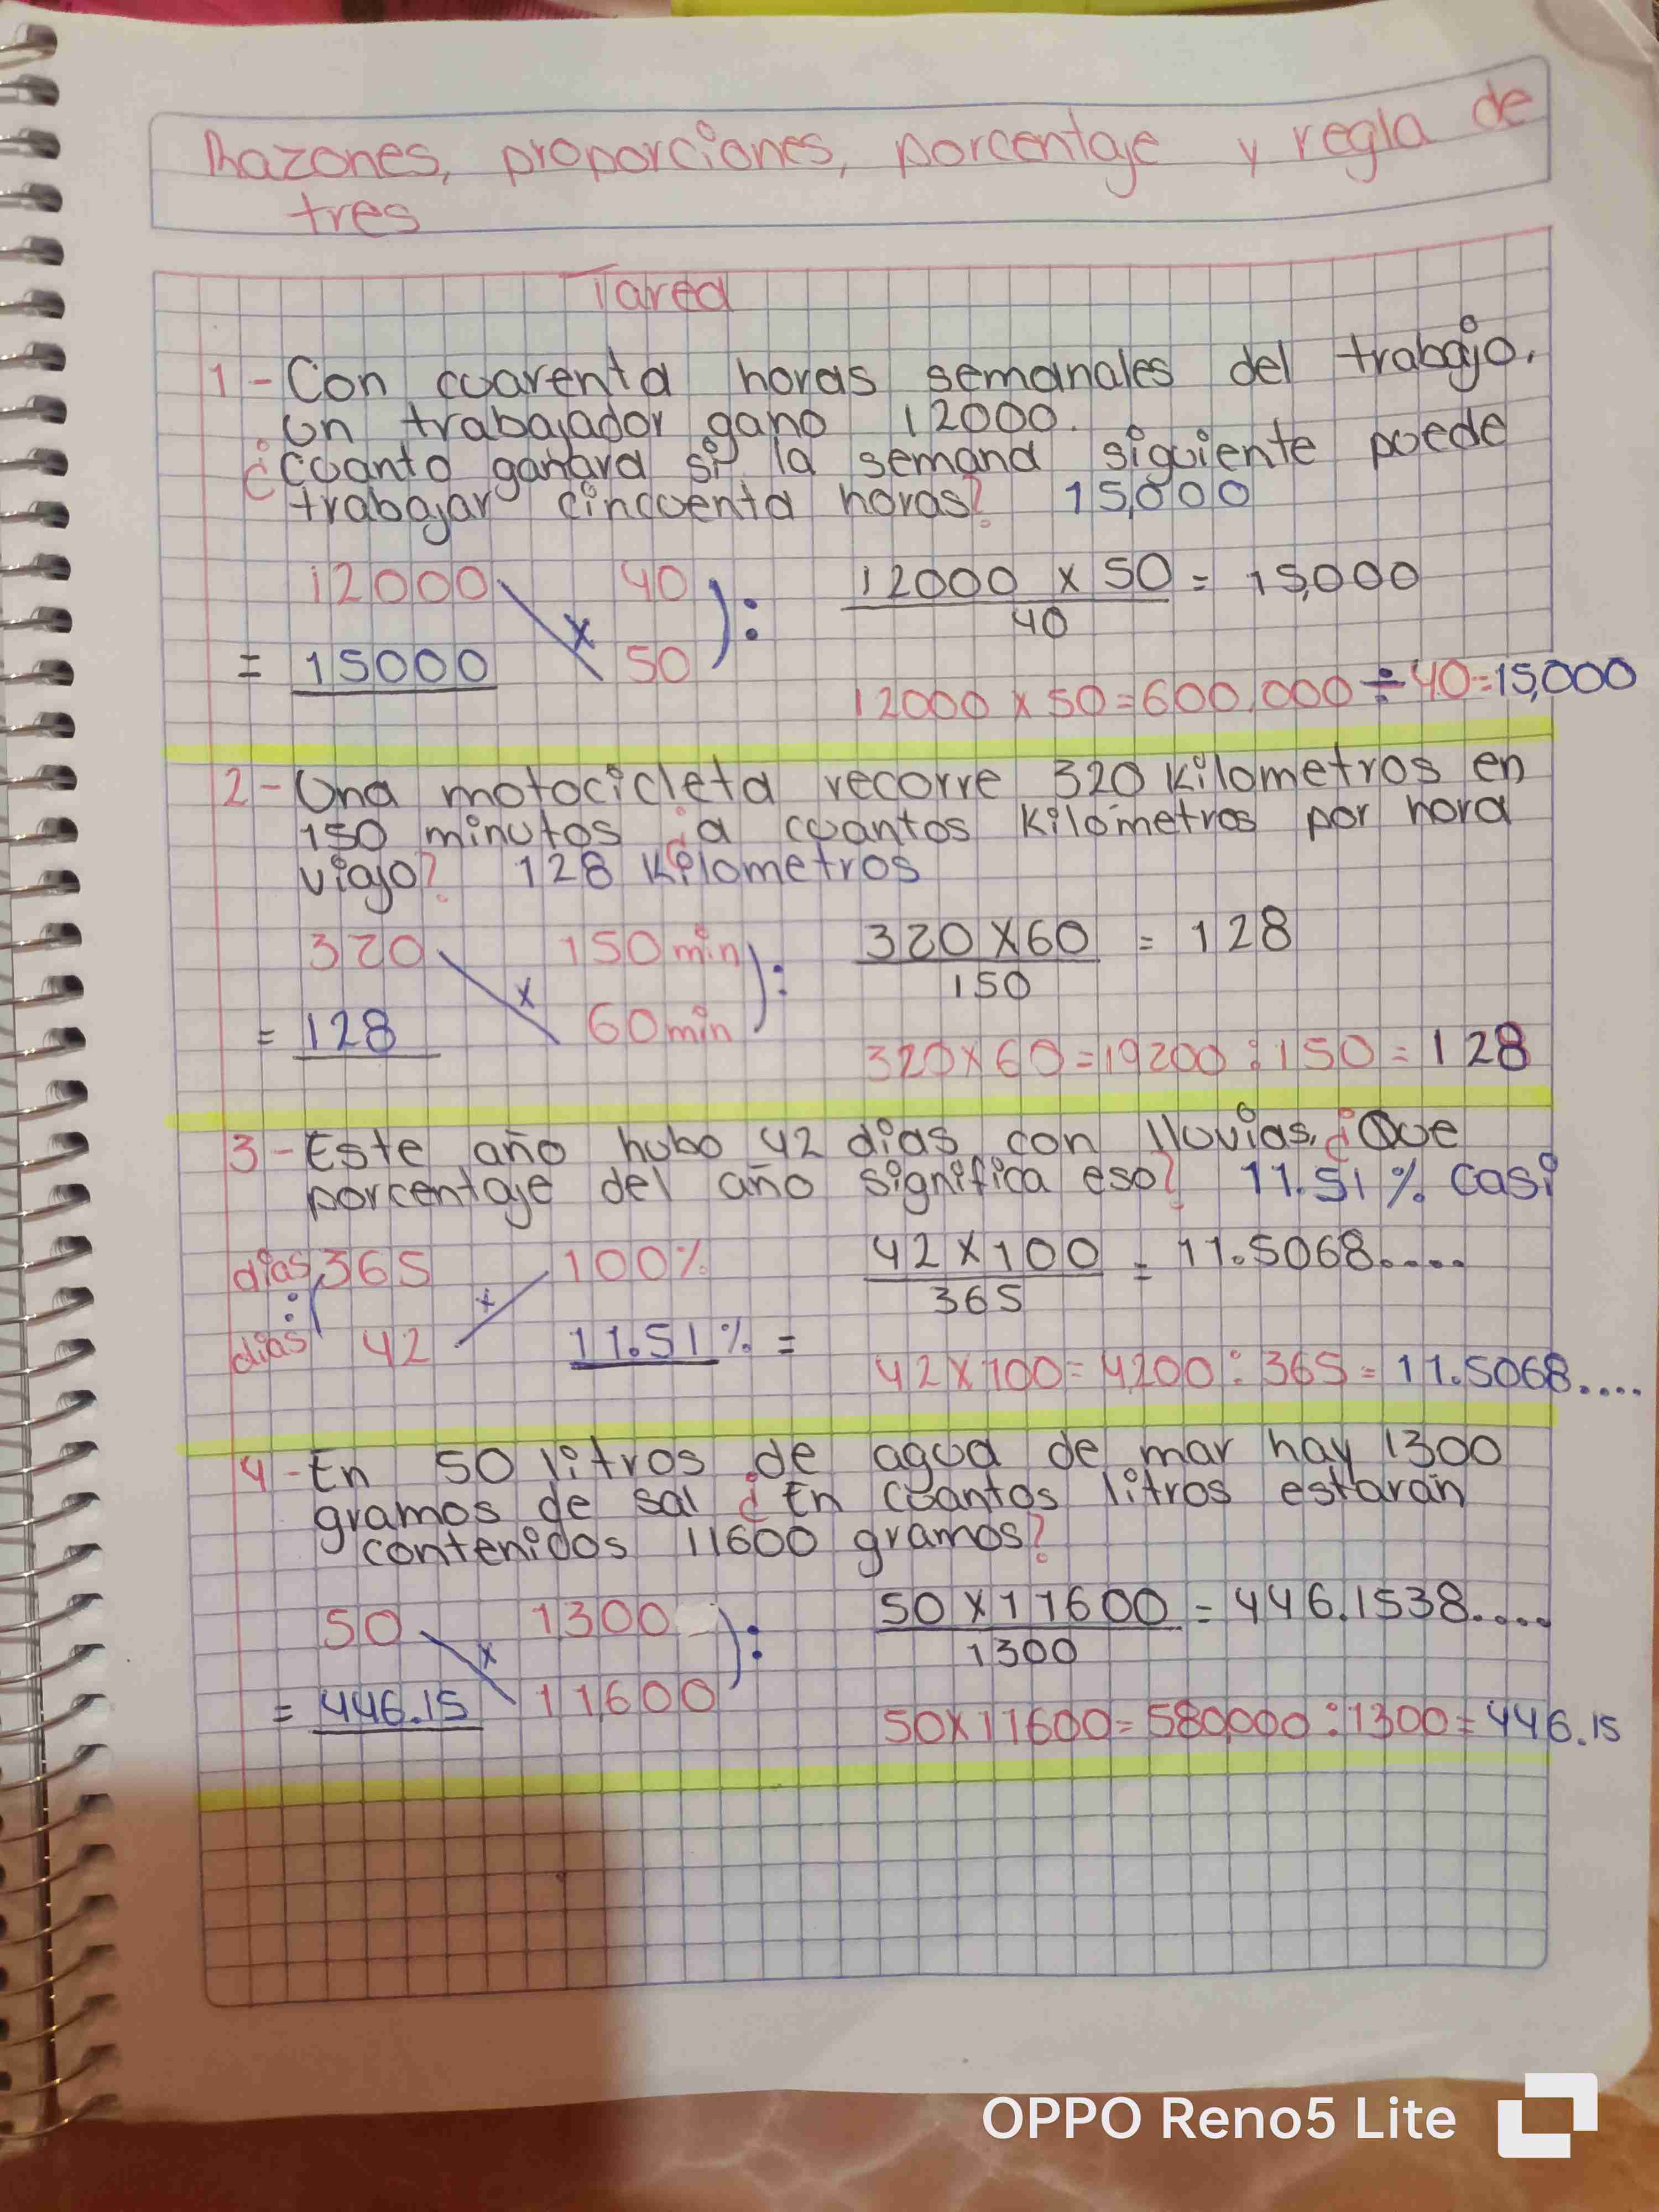 Razones, proporciones, porcentaje y regla de
tres
Tarea
1- Con cuarenta horas semanales del trabajo.
un trabajador gano 12000.
¿cuanto ganara si la semana siguiente puede
trabajar cincuenta horas? 15,000
12000 x 40 ): 12000 x 50 = 15,000
40
= 15000 50
12000 x 50=600,000 ÷ 40=15,000
2- Una motocicleta recorre 320 Kilometros en
150 minutos ¿a cuantos Kilometros por hora
viajo? 128 Kilometros
320 x 150 min ): 320 x 60 = 128
150
= 128 60 min
320x60=19200:150=128
3- Este año hubo 42 dias con lluvias, ¿Que
porcentaje del año significa eso? 11.51% casi
dias 365 x 100% 42 x 100 = 11.5068....
: 365
dias 42 11.51% =
42x100=4200:365=11.5068....
4- En 50 litros de agua de mar hay 1300
gramos de sal ¿En cuantos litros estaran
contenidos 11600 gramos?
50 x 1300 ): 50 x 11600 = 446.1538....
1300
= 446.15 11,600
50x11600=580,000:1300=446.15
OPPO Reno5 Lite